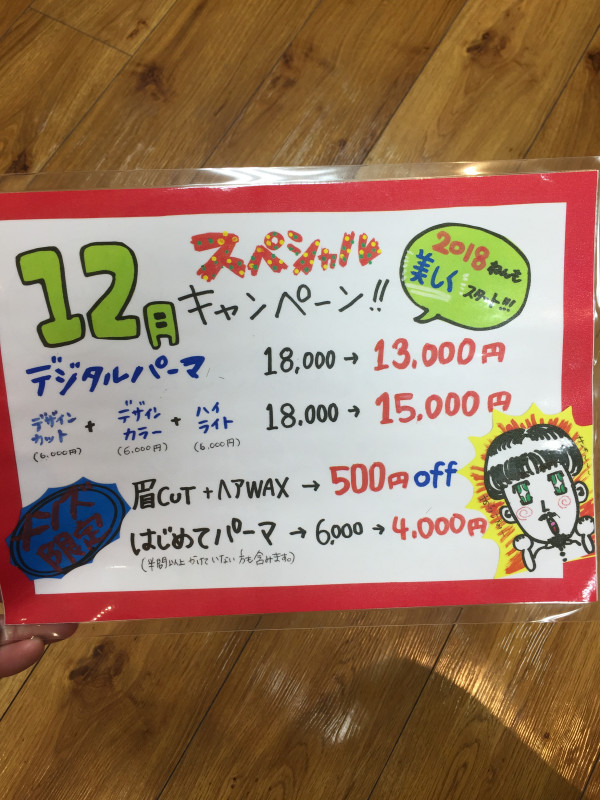 12月 スペシャル
キャンペーン!!
2018ねんも
美しく
スタート!!!
デジタルパーマ 18,000→13,000円
デザインカット + デザインカラー + ハイライト 18.000→15,000円
(6.000円) (6,000円) (6,000円)
限定
眉CUT+ヘアWAX→500円off
はじめてパーマ→6,000→4.000円
(半間以上かけていない方も含みます。)